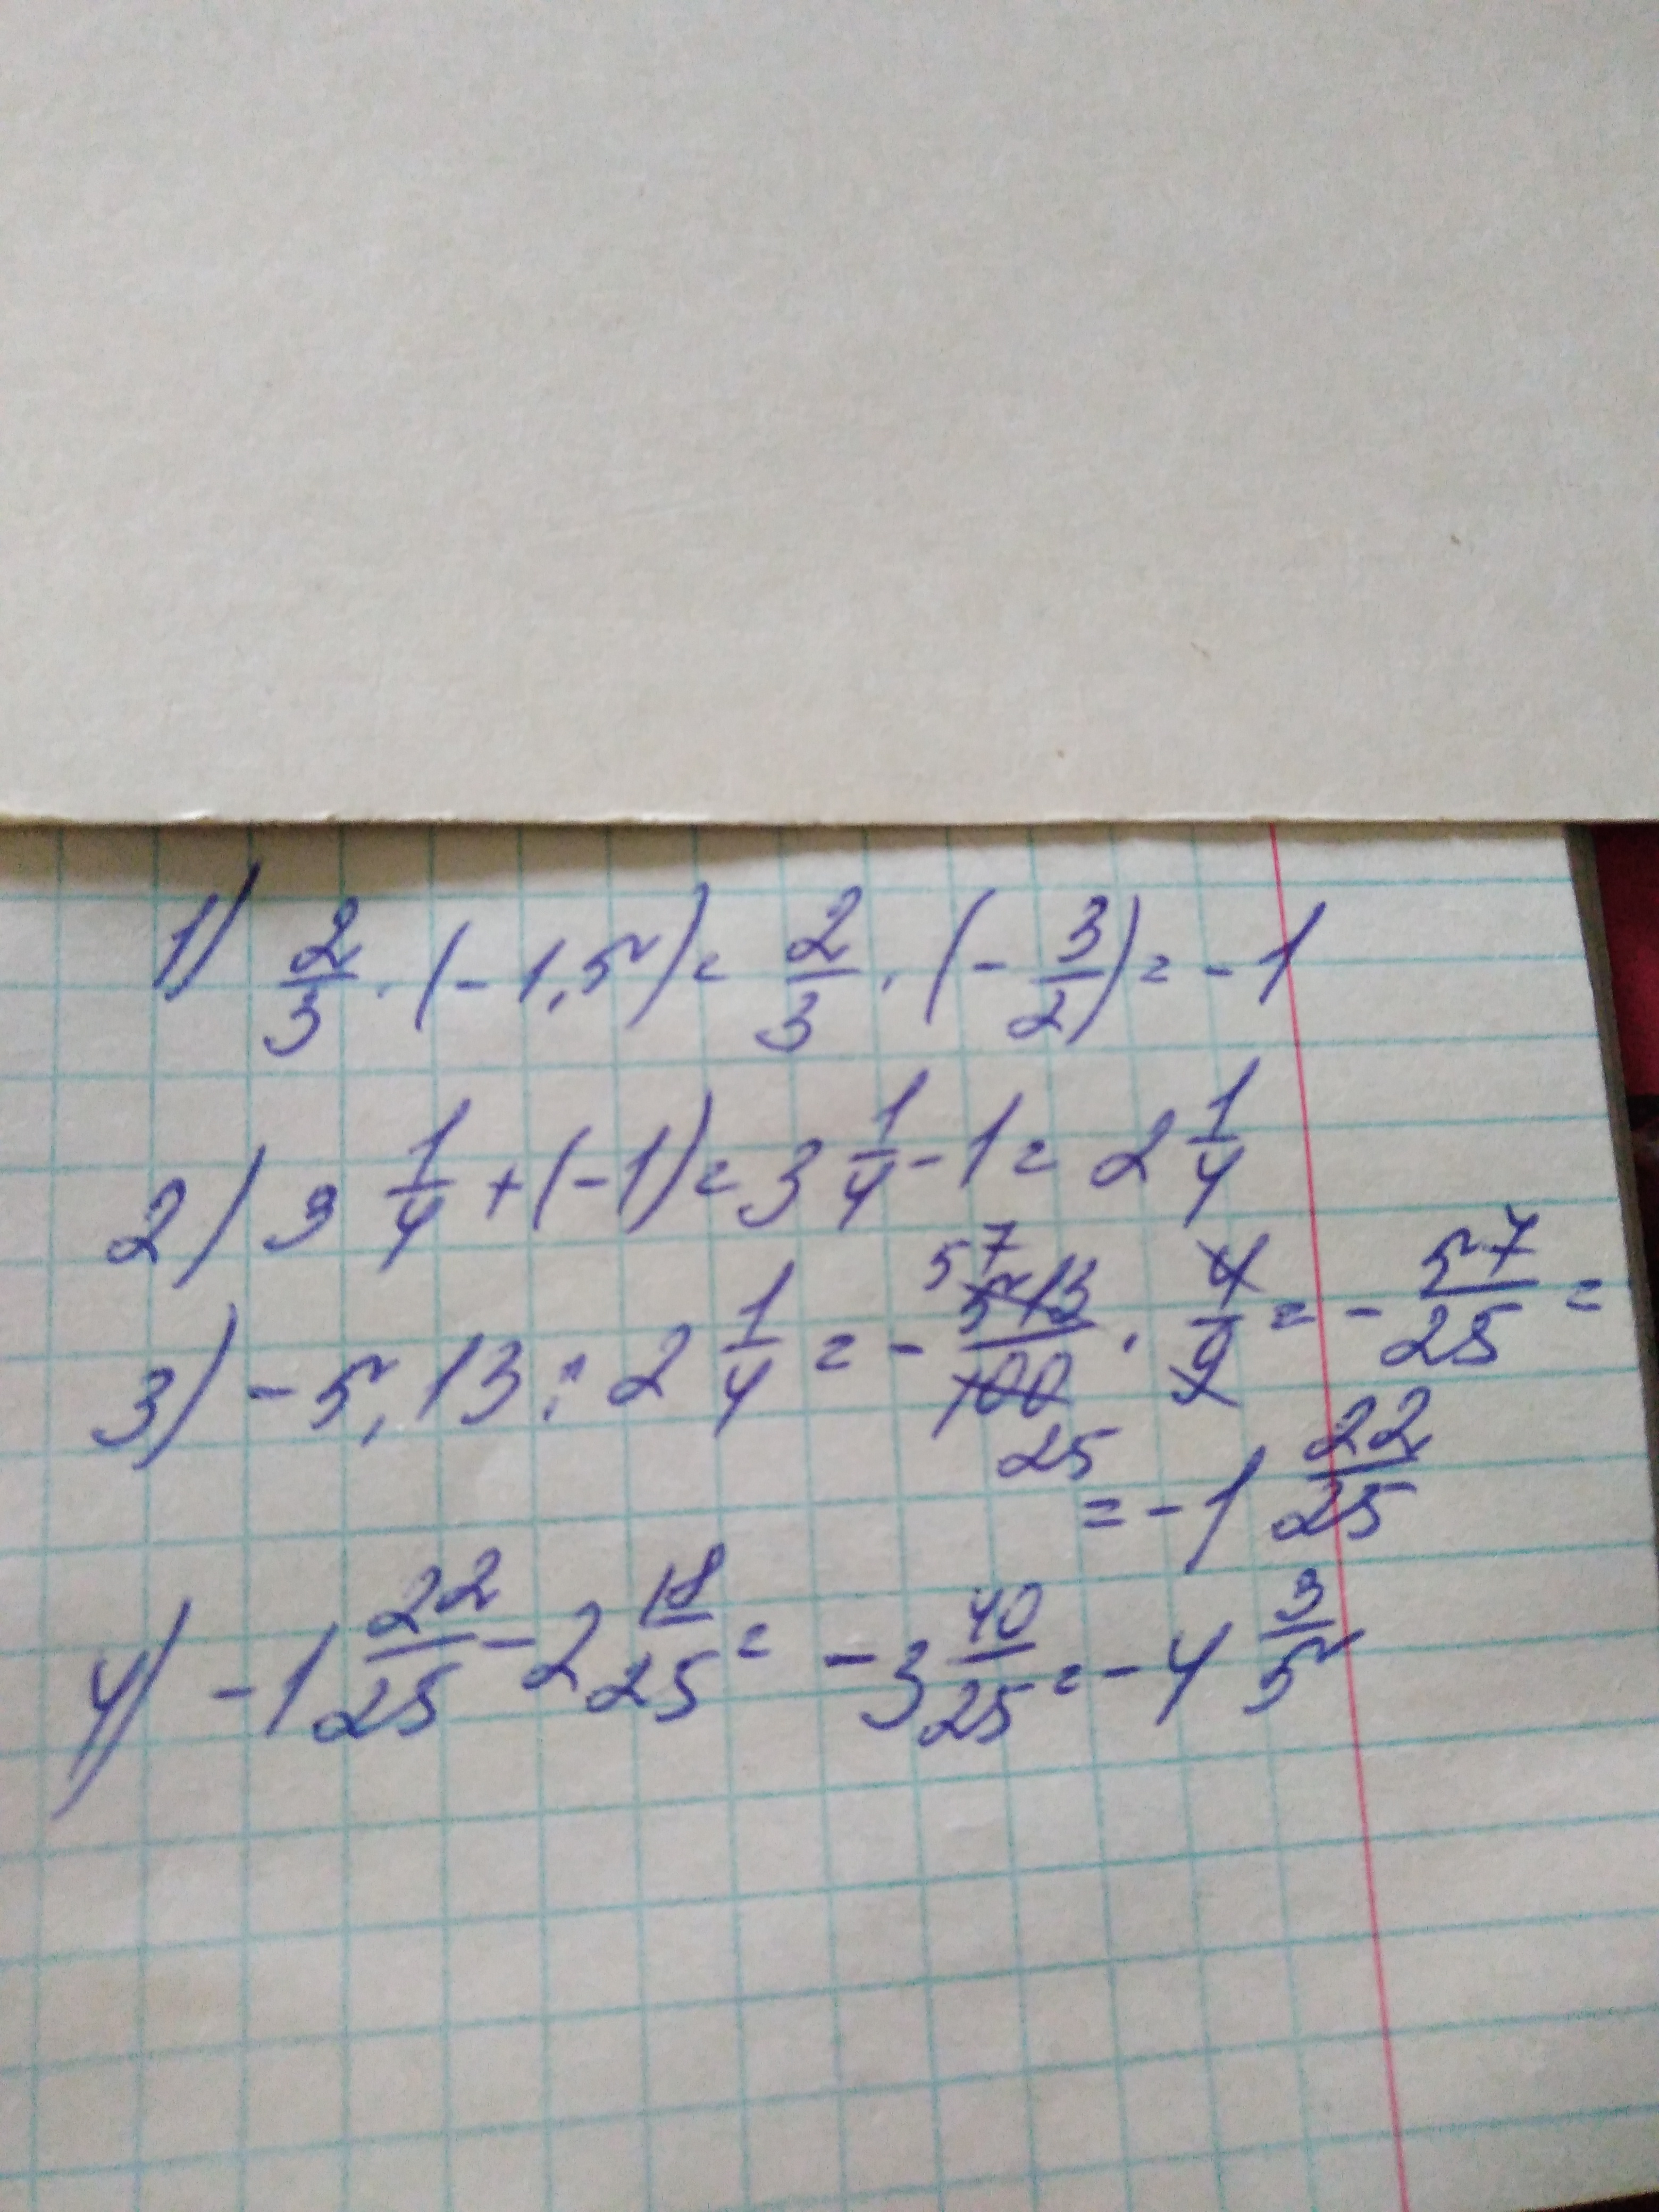 1) 2/3 · (-1,5) = 2/3 · (- 3/2) = -1
2) 3 1/4 + (-1) = 3 1/4 - 1 = 2 1/4
3) -5,13 : 2 1/4 = - 57 513/100 25 · 4/9 = - 57/25 =
= -1 22/25
4) -1 22/25 - 2 18/25 = -3 40/25 = -4 3/5